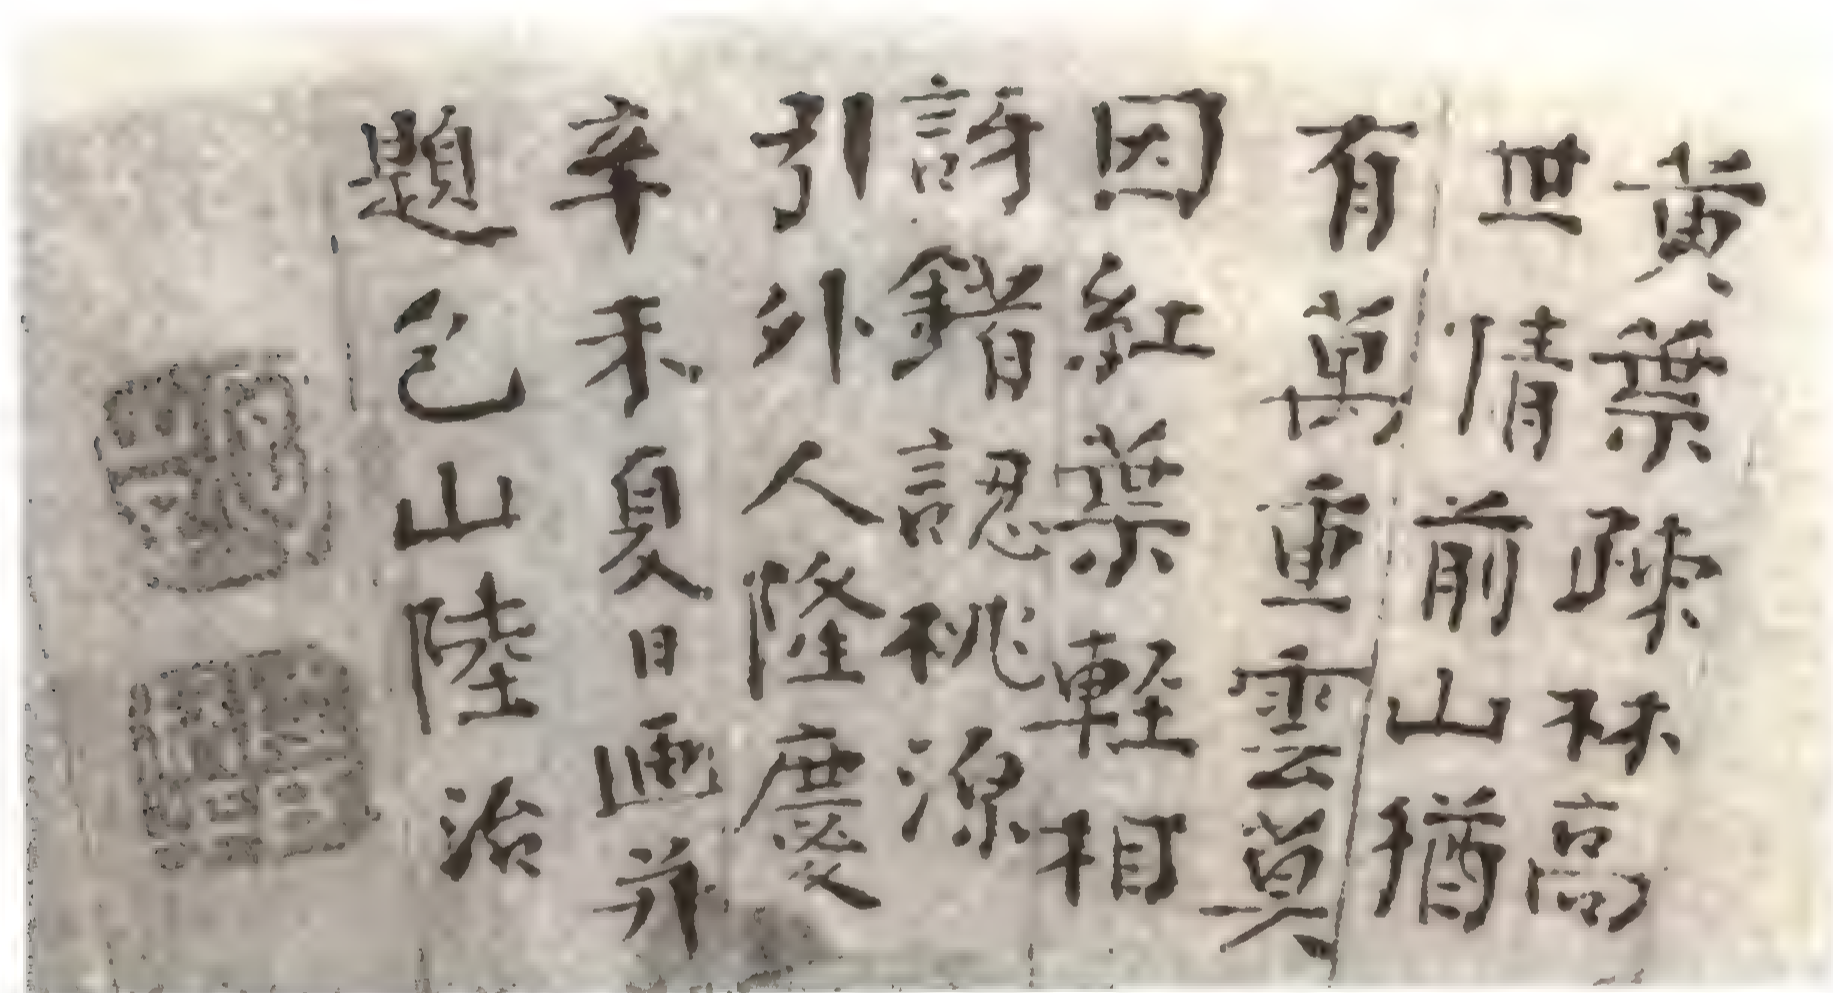 黄葉踈林高
世情前山猶
有萬重雲莫
因紅葉輕相
訝錯認桃源
引外人隆慶
辛未夏日画并
題包山陸治